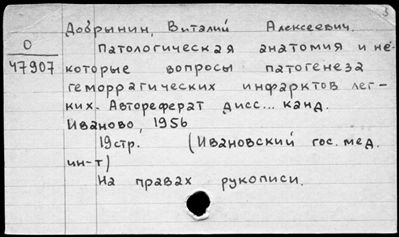 3
Добрынин, Виталий Алексеевич.
О
47907
Патологическая анатомия и не-
которые вопросы патогенеза
геморрагических инфарктов лег-
ких. Автореферат дисс... канд.
Иваново, 1956
19стр. (Ивановский гос. мед.
ин-т)
На правах рукописи.